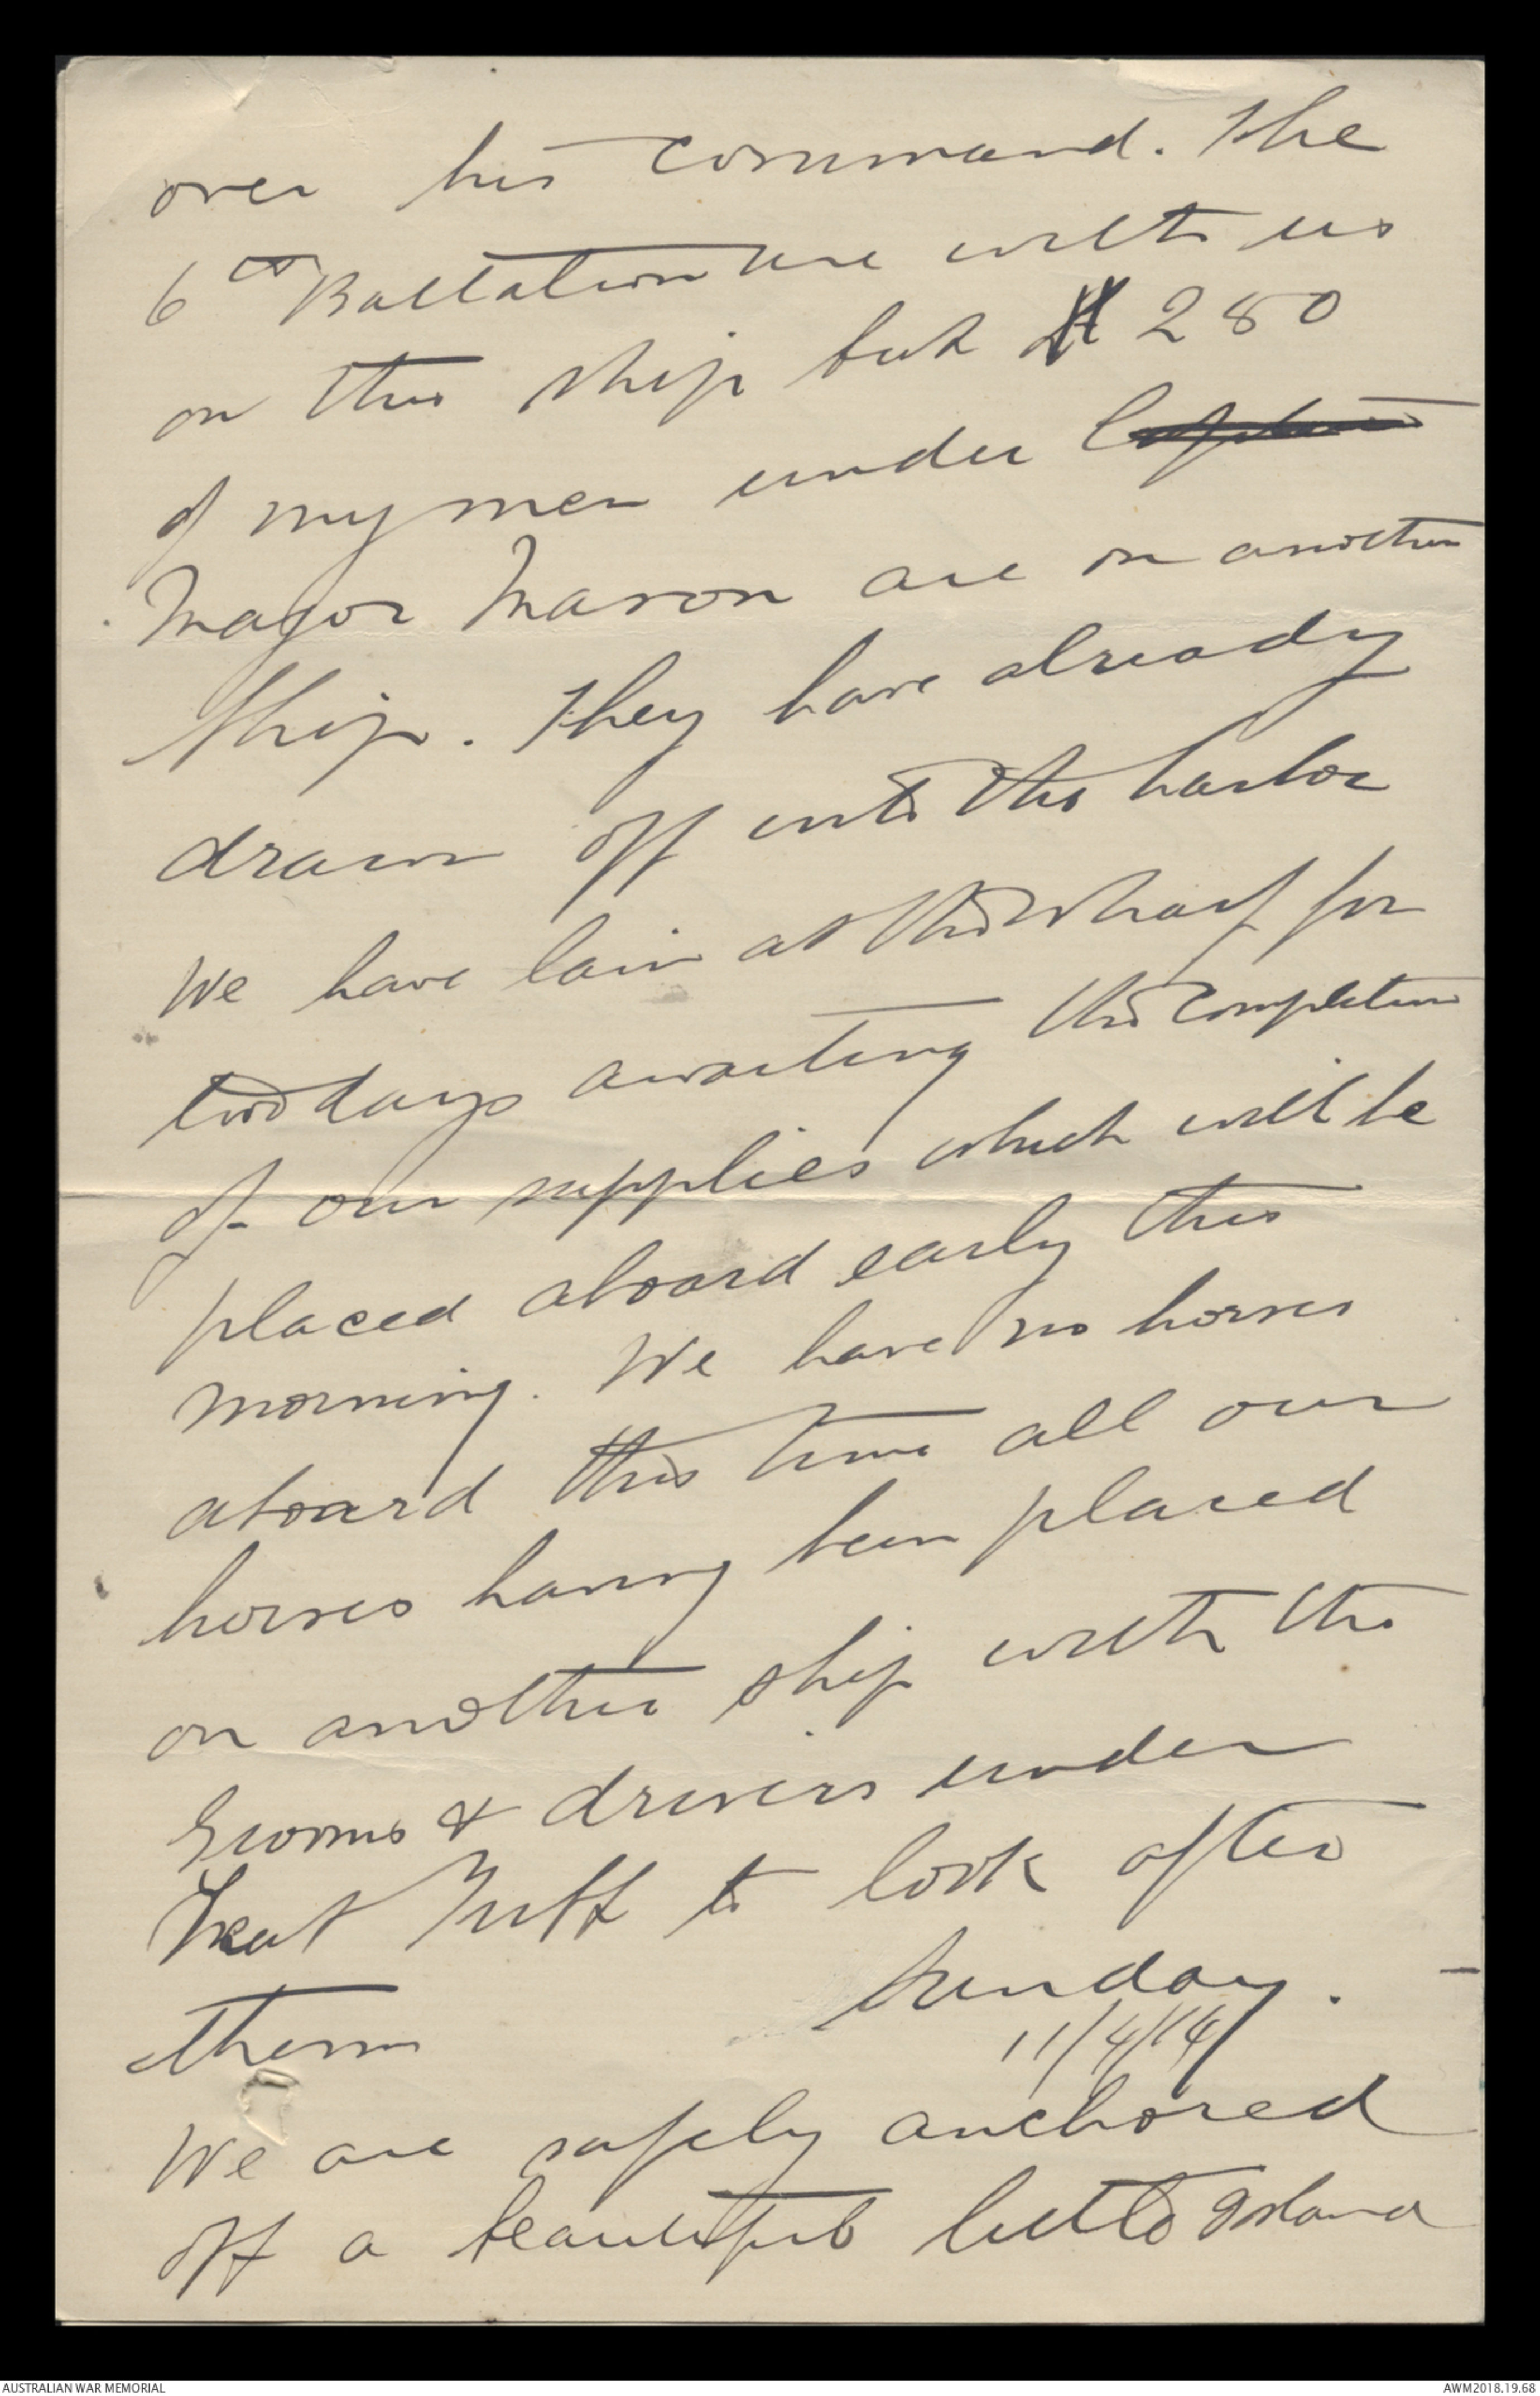 over his command. The
6th Battalion are with us
on this ship but 280
of my men under Captain
Major Mason are on another
ship. They have already
drawn off into the harbor
We have lain at the wharf for
two days awaiting the completion
of our supplies which will be
placed aboard early this
morning. We have no horses
aboard this time all our
horses having been placed
on another ship with the
Grooms & drivers under
Lieut Tuff to look after
them
Sunday.
11/4/14
We are safely anchored
off a beautiful little Island
AUSTRALIAN WAR MEMORIAL
AWM2018.19.68